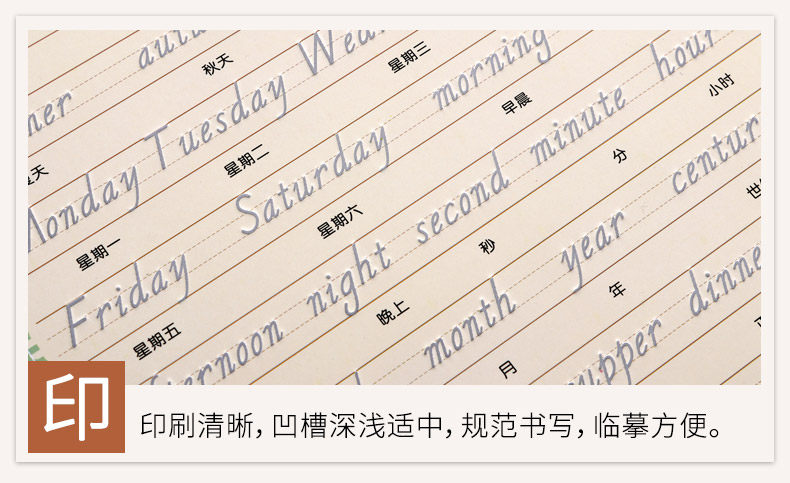 秋天
Monday Tuesday
星期一 星期二 星期三
Friday Saturday morning
星期五 星期六 早晨
night second minute hour
晚上 秒 分 小时
month year
月 年
supper
印
印刷清晰，凹槽深浅适中，规范书写，临摹方便。